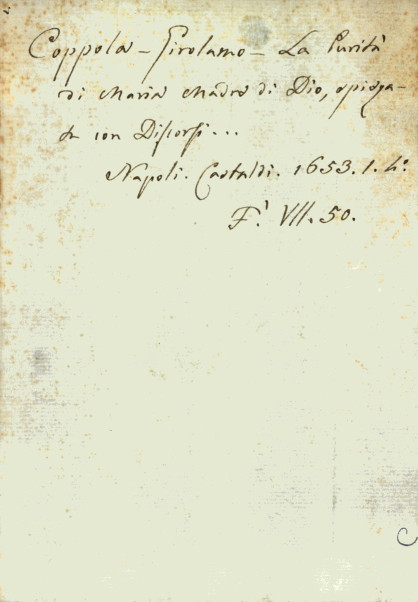 Coppola - Girolamo - La Purità
di Maria Madre di Dio, spiega-
ta con Discorsi...
Napoli. Castaldi. 1653. 1. 4°.
F.' VII. 50.